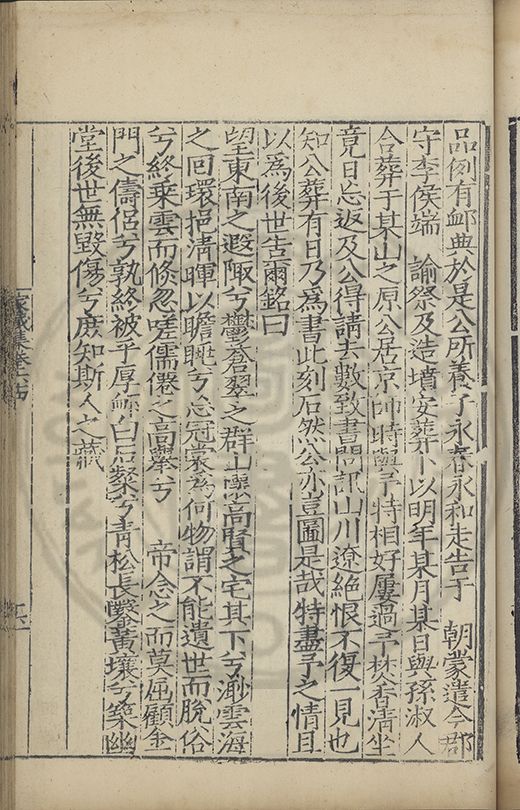 品例有䘏典於是公所養子永春永和走告于　朝蒙遣今郡
守李侯端　諭祭及造墳安葬卜以明年某月某日與孫淑人
合葬于某山之原公居京師時與予特相好屢過予焚香清坐
竟日忘返及公得請去數致書問訊山川遼絶恨不復一見也
知公葬有日乃為書此刻石然公亦豈圖是哉特盡予之情且
以為後世告爾銘曰
望東南之遐陬兮鬱蒼翠之群山粤高賢之宅其下兮渺雲海
之回環挹清暉以瞻眺兮忘冠裳為何物謂不能遺世而脫俗
兮終乘雲而倏忽嗟儒僊之高舉兮　帝念之而莫屈顧金
門之儔侶兮孰終被乎厚䘏白石粲兮青松長鑿黃壤兮築幽
堂後世無毀傷兮庶知斯人之藏
家藏集卷